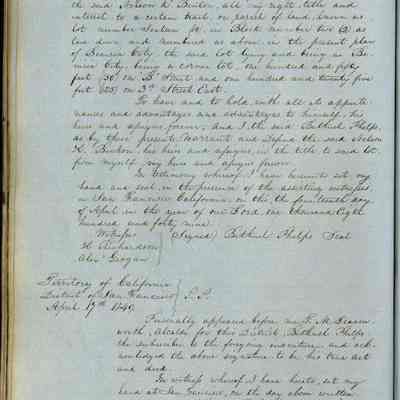 the said Nelson K. Benton, all my right, title and
interest to a certain tract, or parcel of land, known as
lot number in Block number two (2) as
laid down and numbered as above, in the present plan
of Benicia City, the said lot lying and being in Be-
nicia City, being a corner lot, one hundred and fifty
feet (150) on B Street and one hundred and twenty five
feet (125) on 3rd Street East.
To have and to hold, with all its appurte-
nances and advantages and advantages to himself, his
heirs and assigns forever, and I, the said Bethuel Phelps,
as by these presents, Warrants and Defend the said Nelson
K. Benton, his heirs and assigns, in the title to said lot
from myself my heirs and assigns forever.
In Testimony whereof I have hereunto set my
hand and seal, in the presence of the assisting witnesses
in San Francisco California, on this the fourteenth day
of April in the year of our Lord one thousand Eight
hundred and forty nine.
Witness (Signed) Bethuel Phelps Seal
H Richardson
Alex Grogan
Territory of California
District of San Francisco S.S.
April 17th 1849
Personally appeared before me T. M. Leaven-
worth, Alcalde for this District, Bethuel Phelps
the subscriber to the foregoing indenture and ack-
nowledged the above signature to be his true act
and deed.
In witness whereof I have hereto, set my
hand at San Francisco, on the day above written.